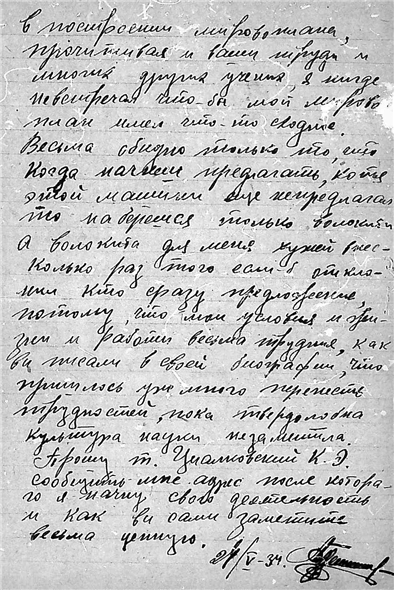 в построении мировоплана,
прочитывая и ваши труды и
многих других учених, я нигде
невстречал что-бы мой мирово
план имел что-то сходное.
Весьма обидно только то, что
когда начнеш предлагать, хотя
этой машини еще непредлагал
то наберешся только волокити
а волокита для меня хужей внес-
колько раз того еслиб откло-
нил кто сразу предложение,
потому, что мои условия жиз-
ни и работи весьма трудния, как
ви писали в своей биографии, что
пришлось уже много перенесть
трудностей, пока твердолобая
культура науки незаметила.
Прошу т. Циалковский К. Э.
сообщить мне адрес после которо-
го я начну свою деятельность
и как ви сами заметите
весьма ценную.
24/V-34.